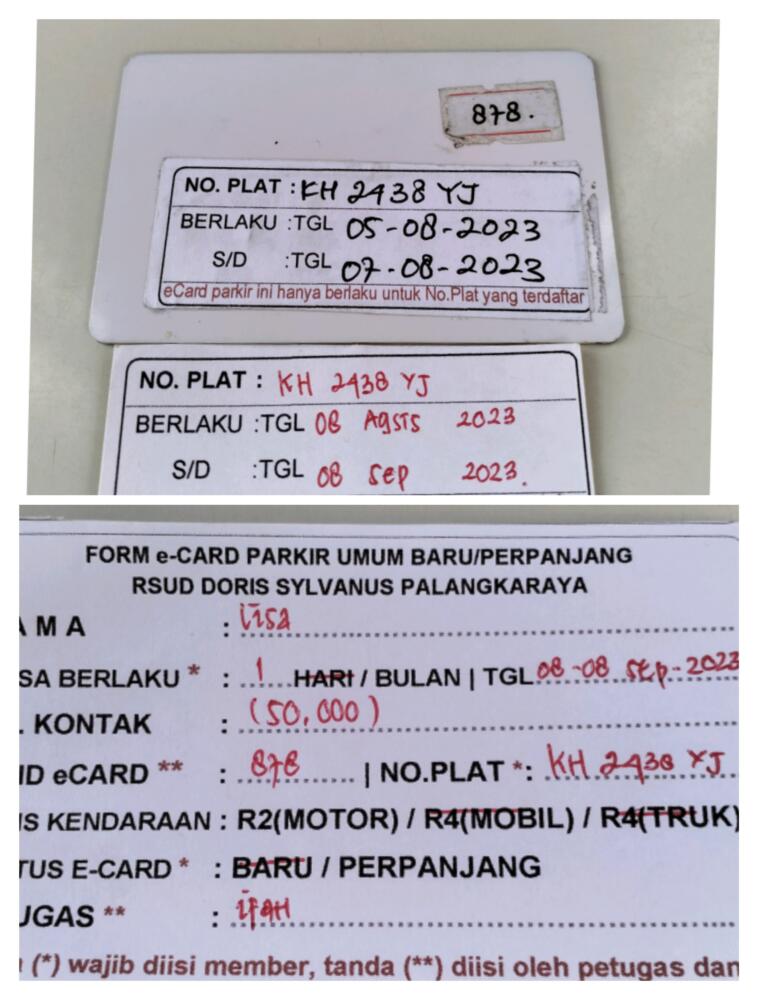 878.
NO. PLAT : KH 2438 YJ
BERLAKU :TGL 05-08-2023
S/D :TGL 07-08-2023
eCard parkir ini hanya berlaku untuk No.Plat yang terdaftar
NO. PLAT : KH 2438 YJ
BERLAKU :TGL 08 Agsts 2023
S/D :TGL 08 Sep 2023.
FORM e-CARD PARKIR UMUM BARU/PERPANJANG
RSUD DORIS SYLVANUS PALANGKARAYA
A M A : lisa
SA BERLAKU * : 1 HARI / BULAN | TGL 08-08 Sep-2023
. KONTAK : (50,000)
ID eCARD ** : 878 | NO.PLAT *: KH 2438 YJ
IS KENDARAAN : R2(MOTOR) / R4(MOBIL) / R4(TRUK)
TUS E-CARD * : BARU / PERPANJANG
UGAS ** : ipah
(*) wajib diisi member, tanda (**) diisi oleh petugas dan